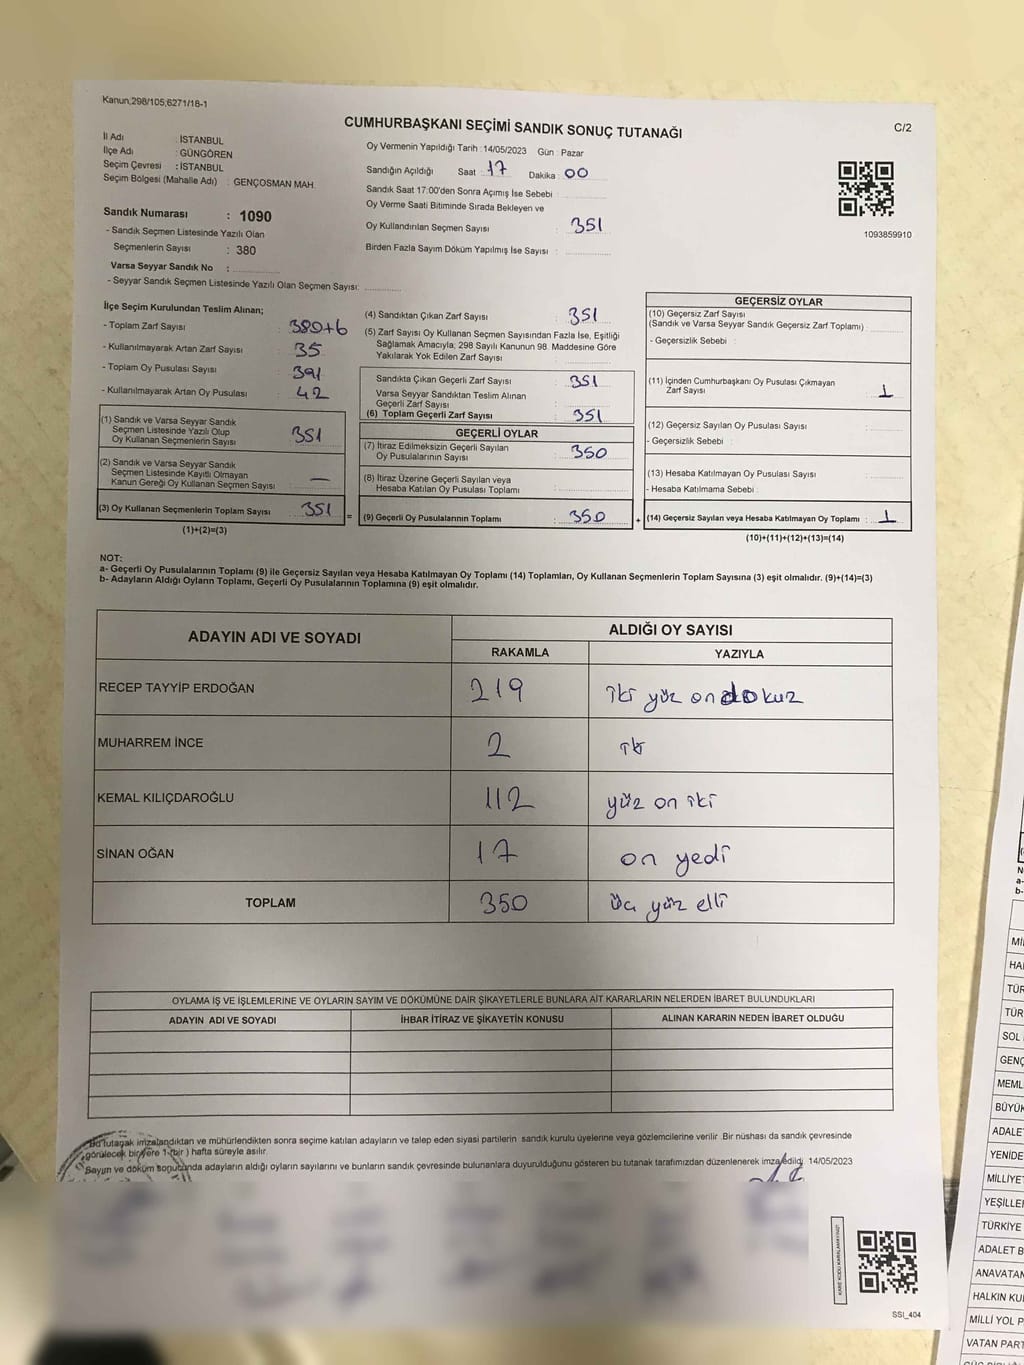 Kanun;298/105;6271/18-1
CUMHURBAŞKANI SEÇİMİ SANDIK SONUÇ TUTANAĞI
C/2
İl Adı : İSTANBUL
İlçe Adı : GÜNGÖREN
Seçim Çevresi : İSTANBUL
Seçim Bölgesi (Mahalle Adı) : GENÇOSMAN MAH.
Sandık Numarası : 1090
- Sandık Seçmen Listesinde Yazılı Olan
Seçmenlerin Sayısı : 380
Varsa Seyyar Sandık No :
- Seyyar Sandık Seçmen Listesinde Yazılı Olan Seçmen Sayısı:
Oy Vermenin Yapıldığı Tarih :14/05/2023 Gün : Pazar
Sandığın Açıldığı Saat : 17 Dakika : 00
Sandık Saat 17:00'den Sonra Açımış İse Sebebi :
Oy Verme Saati Bitiminde Sırada Bekleyen ve
Oy Kullandırılan Seçmen Sayısı : 351
Birden Fazla Sayım Döküm Yapılmış İse Sayısı :
1093859910
İlçe Seçim Kurulundan Teslim Alınan;
- Toplam Zarf Sayısı : 380+6
- Kullanılmayarak Artan Zarf Sayısı : 35
- Toplam Oy Pusulası Sayısı : 391
- Kullanılmayarak Artan Oy Pusulası : 42
(1) Sandık ve Varsa Seyyar Sandık
Seçmen Listesinde Yazılı Olup
Oy Kullanan Seçmenlerin Sayısı : 351
(2) Sandık ve Varsa Seyyar Sandık
Seçmen Listesinde Kayıtlı Olmayan
Kanun Gereği Oy Kullanan Seçmen Sayısı : —
(3) Oy Kullanan Seçmenlerin Toplam Sayısı : 351 =
(1)+(2)=(3)
(4) Sandıktan Çıkan Zarf Sayısı : 351
(5) Zarf Sayısı Oy Kullanan Seçmen Sayısından Fazla İse, Eşitliği
Sağlamak Amacıyla; 298 Sayılı Kanunun 98. Maddesine Göre
Yakılarak Yok Edilen Zarf Sayısı :
Sandıkta Çıkan Geçerli Zarf Sayısı : 351
Varsa Seyyar Sandıktan Teslim Alınan
Geçerli Zarf Sayısı :
(6) Toplam Geçerli Zarf Sayısı : 351
GEÇERLİ OYLAR
(7) İtiraz Edilmeksizin Geçerli Sayılan
Oy Pusulalarının Sayısı : 350
(8) İtiraz Üzerine Geçerli Sayılan veya
Hesaba Katılan Oy Pusulası Toplamı :
(9) Geçerli Oy Pusulalarının Toplamı : 350 +
GEÇERSİZ OYLAR
(10) Geçersiz Zarf Sayısı
(Sandık ve Varsa Seyyar Sandık Geçersiz Zarf Toplamı) :
- Geçersizlik Sebebi :
(11) İçinden Cumhurbaşkanı Oy Pusulası Çıkmayan
Zarf Sayısı : 1
(12) Geçersiz Sayılan Oy Pusulası Sayısı :
- Geçersizlik Sebebi :
(13) Hesaba Katılmayan Oy Pusulası Sayısı :
- Hesaba Katılmama Sebebi :
(14) Geçersiz Sayılan veya Hesaba Katılmayan Oy Toplamı : 1
(10)+(11)+(12)+(13)=(14)
NOT:
a- Geçerli Oy Pusulalarının Toplamı (9) ile Geçersiz Sayılan veya Hesaba Katılmayan Oy Toplamı (14) Toplamları, Oy Kullanan Seçmenlerin Toplam Sayısına (3) eşit olmalıdır. (9)+(14)=(3)
b- Adayların Aldığı Oyların Toplamı, Geçerli Oy Pusulalarının Toplamına (9) eşit olmalıdır.
ADAYIN ADI VE SOYADI
ALDIĞI OY SAYISI
RAKAMLA YAZIYLA
RECEP TAYYİP ERDOĞAN 219 iki yüz ondokuz
MUHARREM İNCE 2 iki
KEMAL KILIÇDAROĞLU 112 yüz on iki
SİNAN OĞAN 17 on yedi
TOPLAM 350 üç yüz elli
OYLAMA İŞ VE İŞLEMLERİNE VE OYLARIN SAYIM VE DÖKÜMÜNE DAİR ŞİKAYETLERLE BUNLARA AİT KARARLARIN NELERDEN İBARET BULUNDUKLARI
ADAYIN ADI VE SOYADI İHBAR İTİRAZ VE ŞİKAYETİN KONUSU ALINAN KARARIN NEDEN İBARET OLDUĞU
Bu tutanak imzalandıktan ve mühürlendikten sonra seçime katılan adayların ve talep eden siyasi partilerin sandık kurulu üyelerine veya gözlemcilerine verilir .Bir nüshası da sandık çevresinde
görülecek bir yere 1 (bir ) hafta süreyle asılır.
Sayım ve döküm sonucunda adayların aldığı oyların sayılarını ve bunların sandık çevresinde bulunanlara duyurulduğunu gösteren bu tutanak tarafımızdan düzenlenerek imza edildi. 14/05/2023
SSI_404
MİL
HA
TÜR
TÜR
SOL
GENÇ
MEML
BÜYÜK
ADALE
YENİDE
MİLLİYET
YEŞİLLER
TÜRKİYE
ADALET B
ANAVATAN
HALKIN KU
MİLLİ YOL P
VATAN PART